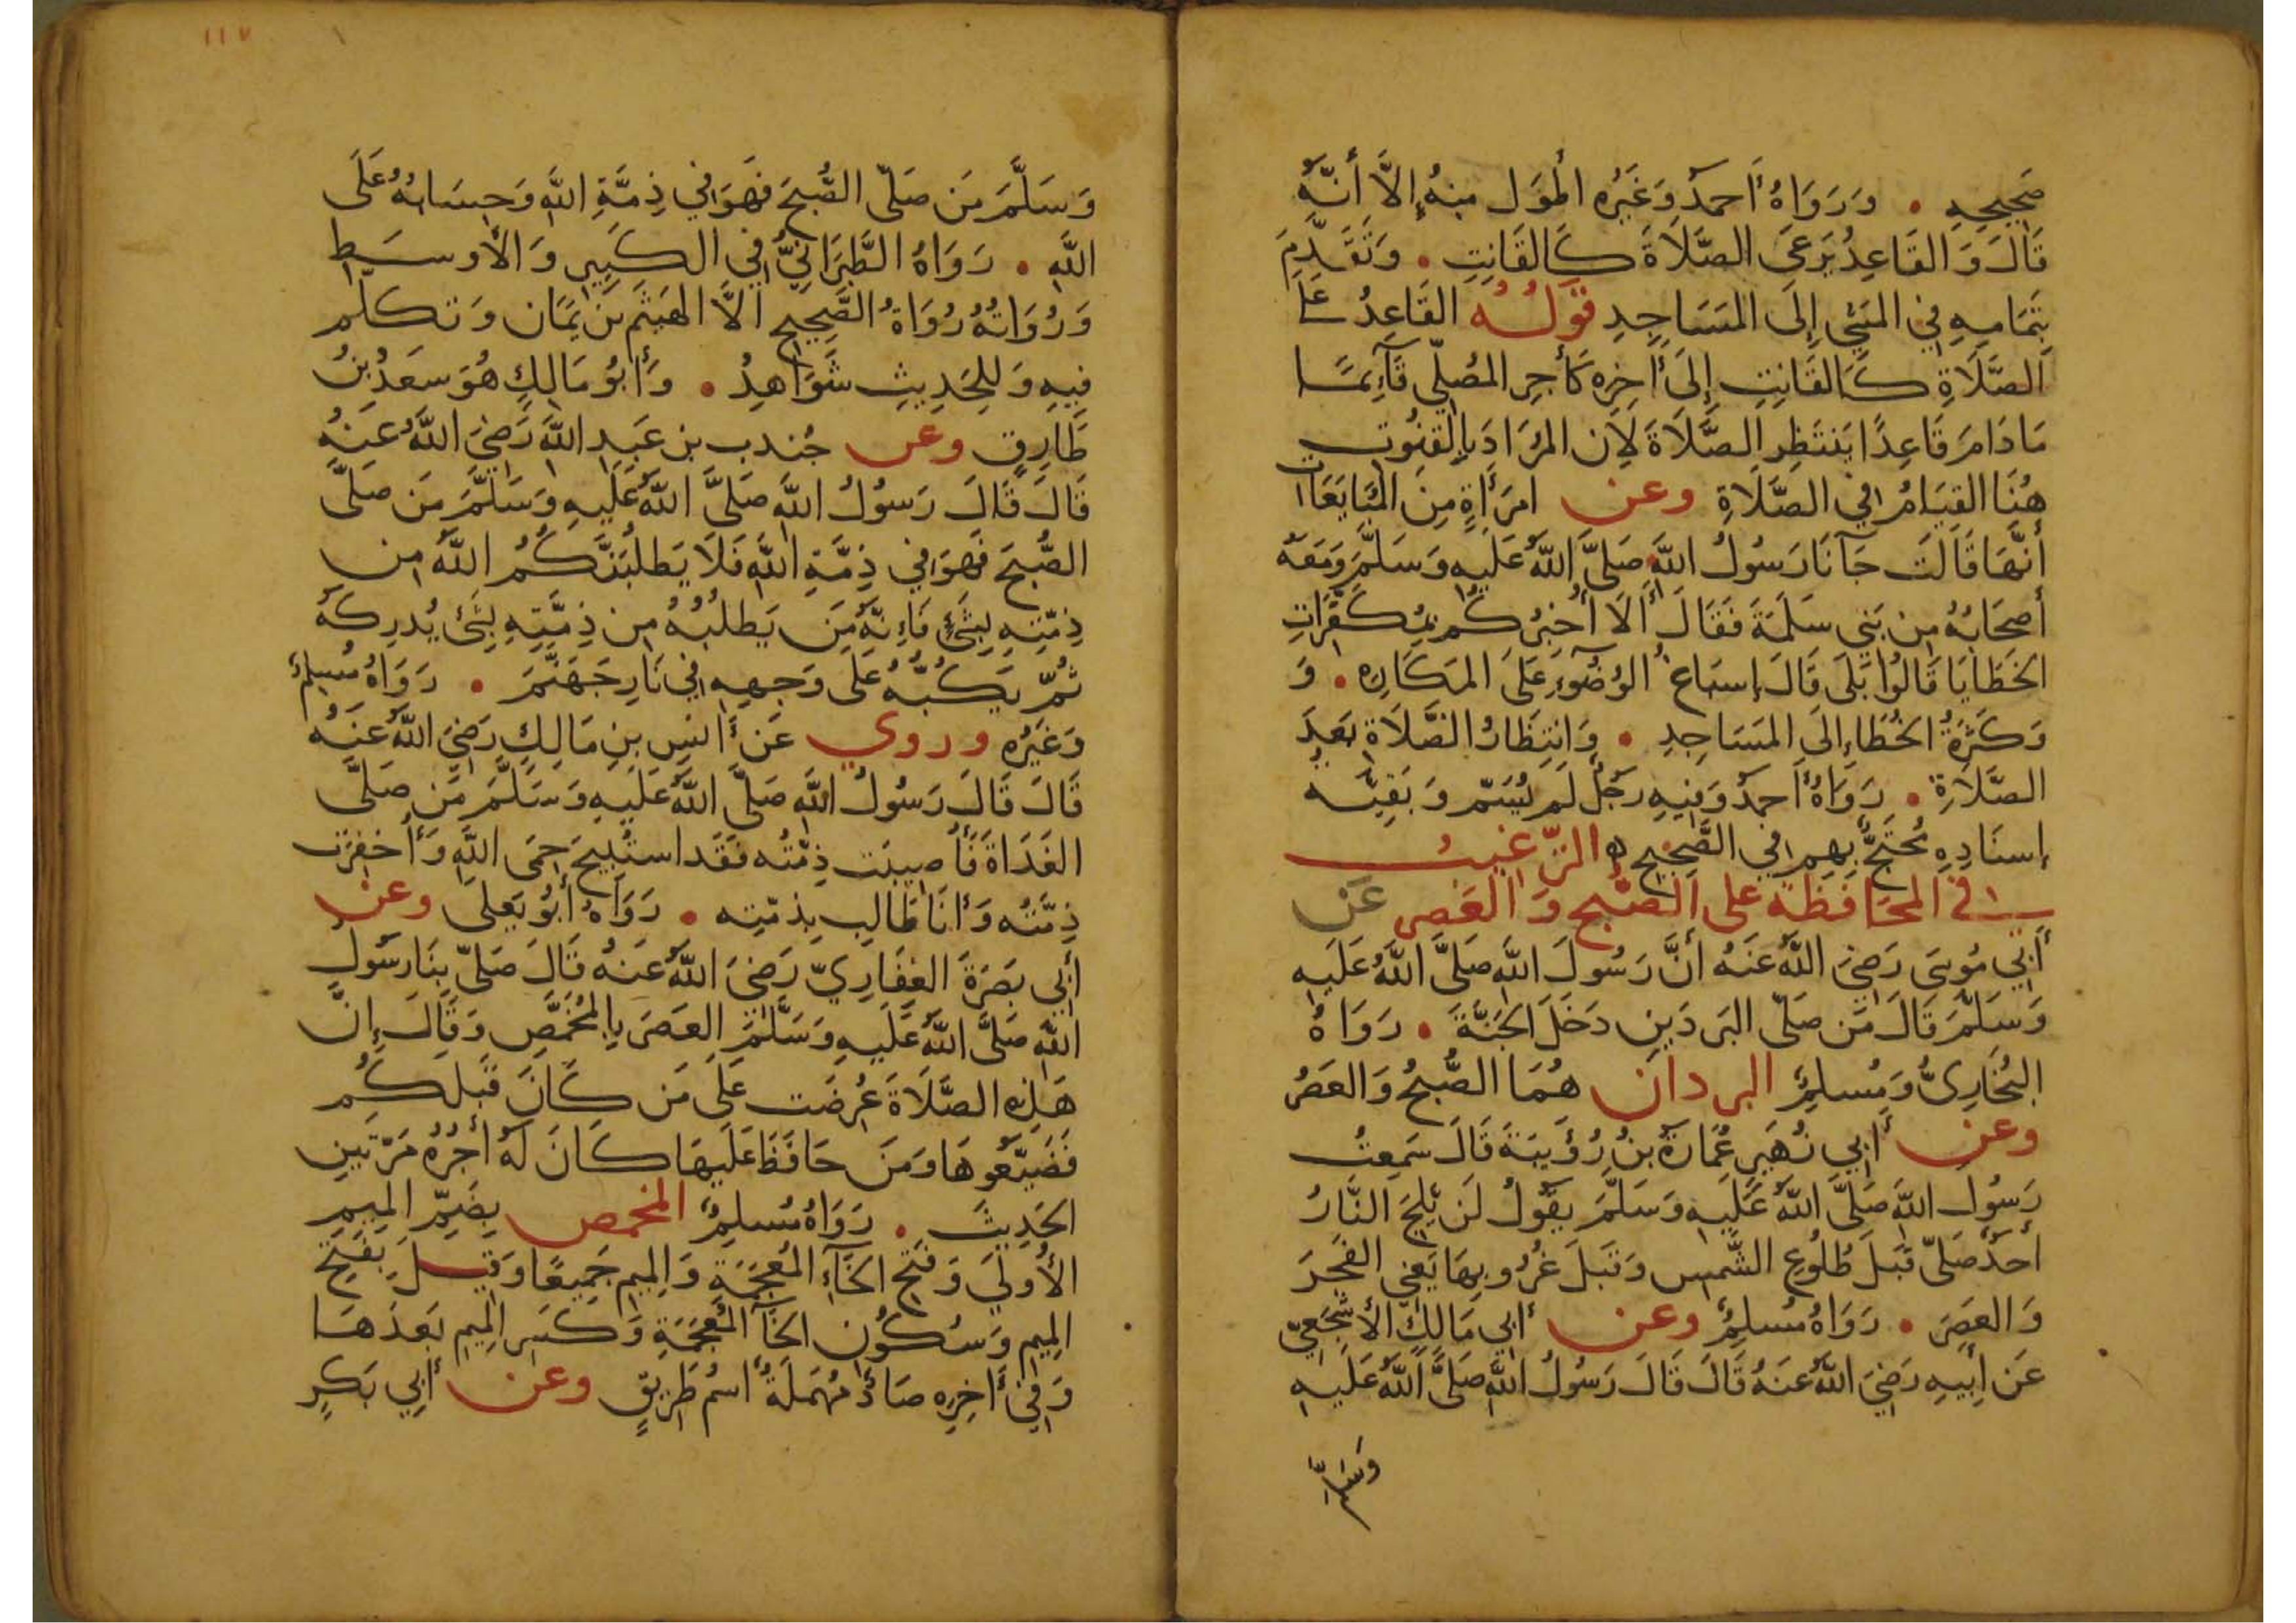 صَحِيحِهِ • وَرَوَاهُ أَحمَدُ وَغَيرُه أطوَل مِنهُ إِلَّا أَنَّهُ
قَالَ وَالقَاعِدُ يَرعَى الصَّلَاةَ كَالقَانِتِ • وَتَقَدَّمَ
بِتَمَامِهِ فِي المَشيِ إِلَى المَسَاجِدِ قَولُهُ القَاعِدُ عَلَى
الصَّلَاةِ كَالقَانِتِ إِلَى أٰخِرِه كَأَجرِ المُصَلِّي قَآئِمًا
مَا دَامَ قَاعِدًا يَنتَظِرِ الصَّلَاةَ لِأَن المُرَادَ بِالقُنُوتِ
هُنَا القِيَامُ فِي الصَّلَاةِ وعن امرَأَةٍ مِنَ المُبَايِعَات
أَنَّهَا قَالَت جَآنَا رَسُولُ اللَّه صَلَّى اللَّهُ عَلَيهِ وَسَلَّمَ وَمَعَهُ
أَصحَابُهُ مِن بَنِي سَلَمَةَ فَقَالَ أَلَا أُخبِرُكُم بِمُكَفِّرَاتِ
الخَطَايَا قَالُوا بَلَى قَالَ إِسبَاغُ الوُضُوءِ عَلَى المَكَارِه • وَ
وَكَثرَةُ الخُطَاءِ إِلَى المَسَاجِدِ • وَانتِظَارُ الصَّلَاةِ بَعدَ
الصَّلَاةِ • رَوَاهُ أَحمَدُ وَفِيهِ رَجُلٌ لَم يُسَمّ وَبَقِيَّه
إِسنَادِهِ مُحتَجٌّ بِهِم فِي الصَّحِيحِ ه الترغيب
في المحَافظة على الصّبح وَالعَصرِ عَن
أَبِي مُوسَى رَضِيَ اللَّهُ عَنهُ أَنَّ رَسُولَ اللَّه صَلَّى اللَّهُ عَلَيهِ
وَسَلَّمَ قَالَ مَن صَلّى البَردَينِ دَخَلَ الجَنَّةَ • رَوَاهُ
البُخَارِيُّ وَمُسلِمٌ البردان هُمَا الصُّبحُ وَالعَصرُ
وعن أَبِي زُهَيرٍ عُمَارَةَ بنُ رُؤَيبَةَ قَالَ سَمِعتُ
رَسُولَ اللَّه صَلَّى اللَّهُ عَلَيهِ وَسَلَّمَ يَقُولُ لَن يَلِجَ النَّارَ
أَحَدٌ صَلّى قَبلَ طُلُوعِ الشَّمسِ وَقَبلَ غُرُوبِهَا يَعنِي الفَجرَ
وَالعَصرَ • رَوَاهُ مُسلِمٌ وعن أَبِي مَالِكٍ الأَشجَعِيّ
عَن أَبِيهِ رَضِيَ اللَّهُ عَنهُ قَالَ قَالَ رَسُولُ اللَّه صَلَّى اللَّهُ عَلَيهِ
وَسَلَّم
١١٧
وَسَلَّمَ مَن صَلّى الصُّبحَ فَهوَ فِي ذِمَّةِ اللَّهِ وَحِسَابُهُ عَلَى
اللَّهِ • رَوَاهُ الطَّبَرَانِيُّ فِي الكَبِيرِ وَالأَوسَطِ
وَرُوَاتُهُ رُوَاةُ الصَّحِيحِ الَّا الهَيثَم بن يَمَان وَتكَلّم
فِيهِ وَلِلحَدِيثِ شَوَاهِدُ • وَأَبُو مَالِكٍ هُوَ سَعدُ بنُ
طَارِقٍ وعن جُندب بن عَبدِ اللَّهِ رَضِيَ اللَّهُ عَنهُ
قَالَ قَالَ رَسُولُ اللَّه صَلَّى اللَّهُ عَلَيهِ وَسَلَّمَ مَن صَلَّى
الصُّبحَ فَهوَ فِي ذِمَّةِ اللَّهِ فَلَا يَطلُبَنَّكُمُ اللَّهُ مِن
ذِمّتِهِ بِشَئٍ فَإِنَّهُ مَن يَطلُبُهُ مِن ذِمَّتِهِ بِشَئٍ يُدرِكهُ
ثُمّ يَكُبُّهُ عَلَى وَجهِهِ فِي نَارِ جَهَنَّمَ • رَوَاهُ مُسلِمٌ
وَغَيرُه وروي عَن أَنَسِ بنِ مَالِكٍ رَضِيَ اللَّهُ عَنهُ
قَالَ قَالَ رَسُولُ اللَّه صَلَّى اللَّهُ عَلَيهِ وَسَلَّمَ مَن صَلَّى
الغَدَاةَ فَأُصِيبَت ذِمَّتُه فَقَد استُبِيحَ حِمَى اللَّهِ وَأُخفِرَت
ذِمَّتُه وَأَنَا طَالِب بِذمّتِه • رَوَاهُ أَبُو يَعلَى وعن
أَبِي بَصرَةَ الغِفَارِيّ رَضِيَ اللَّهُ عَنهُ قَالَ صَلّى بِنَا رَسُولُ
اللَّه صَلَّى اللَّهُ عَلَيهِ وَسَلَّمَ العَصرَ بِالمُخَمَّصِ وَقَالَ إِنَّ
هَذِهِ الصَّلَاةَ عُرِضَت عَلَى مَن كَانَ قَبلَكُم
فَضَيَّعُوهَا وَمَن حَافَظَ عَلَيهَا كَانَ لَهُ أَجرُهُ مَرّتَينِ
الحَدِيثَ • رَوَاهُ مُسلِمٌ المخمص بِضَمِّ المِيمِ
الأُولَى وَفَتحِ الخَاءِ المُعجَمَةِ وَالمِيمِ جَمِيعًا وَقِيلَ بِفَتحِ
المِيمِ وَسُكُونِ الخَآ المُعجَمَةِ وَكَسرِ المِيمِ بَعدَهَا
وَفِي أٰخِرِهِ صَادٌ مُهمَلَةٌ اسمُ طَرِيقٍ وعن أَبِي بَكرٍ